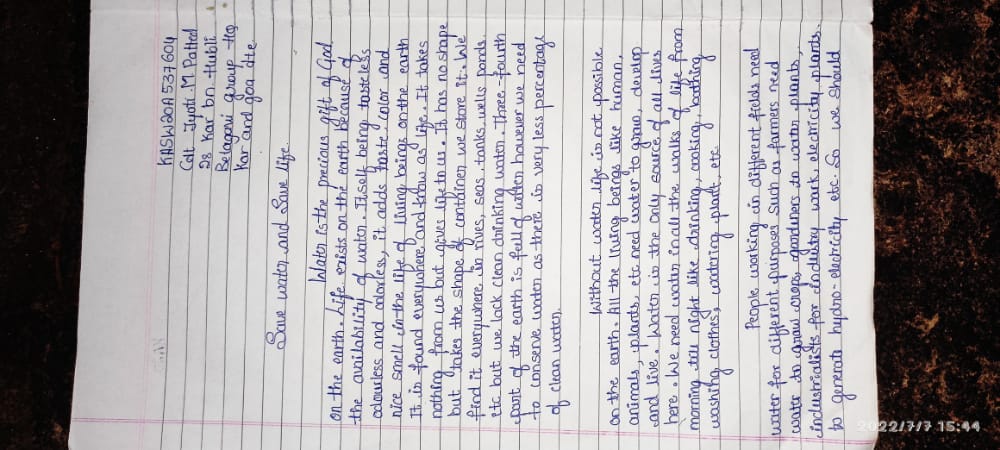 KASW20A537604
Cdt Jyoti .M. Patted
28 Kar bn. Hubli
Belagavi group Hq
Kar and goa dte.
Save water and Save life
Water is the precious gift of God
on the earth. Life exists on the earth because of
the availability of water. Itself being tasteless
odourless and colorless, it adds taste, color and
nice smell in the life of living beings on the earth
It is found everywhere and know as life. It takes
nothing from us but gives life to us. It has no shape
but takes the shape of container we store it. We
find it everywhere in rives, seas, tanks, wells ponds.
etc but we lack clean drinking water. Three-fourth
part of the earth is feel of water however we need
to conserve water as there is very less percentage
of clean water.
Without water life is not possible
on the earth. All the living beings like human,
animals, plants, etc need water to grow, develop
and live. Water is the only source of all lives
here. We need water in all the walks of life from
morning till night like drinking, cooking, bathing
washing clothes, watering plant, etc
People working in different fields need
water for different purposes such as farmers need
water to grow crops, gardners to water plants,
industrialists for industry work, electricity plants.
to generate hydro-electricity etc. So we should
2022/7/7 15:44